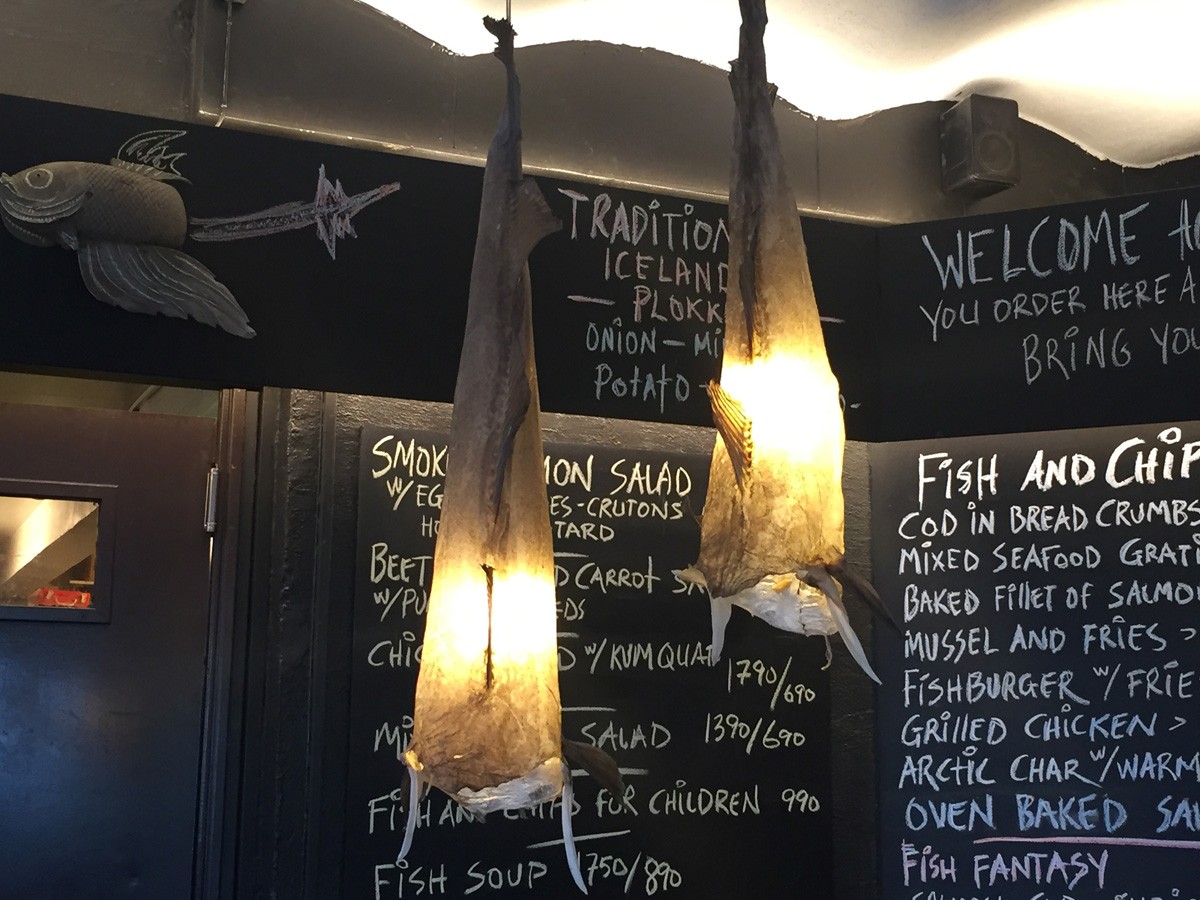 TRADITION
ICELAND
— PLOKK —
ONION — Mi
POTATO -
WELCOME
YOU ORDER HERE A
BRING YOU
SMOK MON SALAD
W/ EG ES-CRUTONS
HO TARD
BEET D CARROT SA
W/ PU EDS
CHIC D W/ KUMQUAT 1790/690
Mi SALAD 1390/690
FISH AND CHIPS FOR CHILDREN 990
FISH SOUP 1750/890
FISH AND CHIP
COD IN BREAD CRUMBS
MIXED SEAFOOD GRATI
BAKED FILLET OF SALMO
MUSSEL AND FRIES >
FISHBURGER W/ FRIE
GRILLED CHICKEN >
ARCTIC CHAR W/ WARM
OVEN BAKED SA
FISH FANTASY